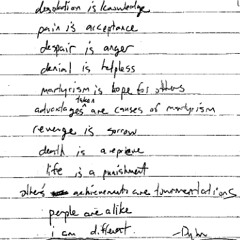 desolation is knowledge
pain is acceptance
despair is anger
denial is helpless
martyrism is hope for others
advantages taken are causes of martyrism
revenge is sorrow
death is a reprieve
life is a punishment
others achievements are tourmentations
people are alike
i am different -Dylan